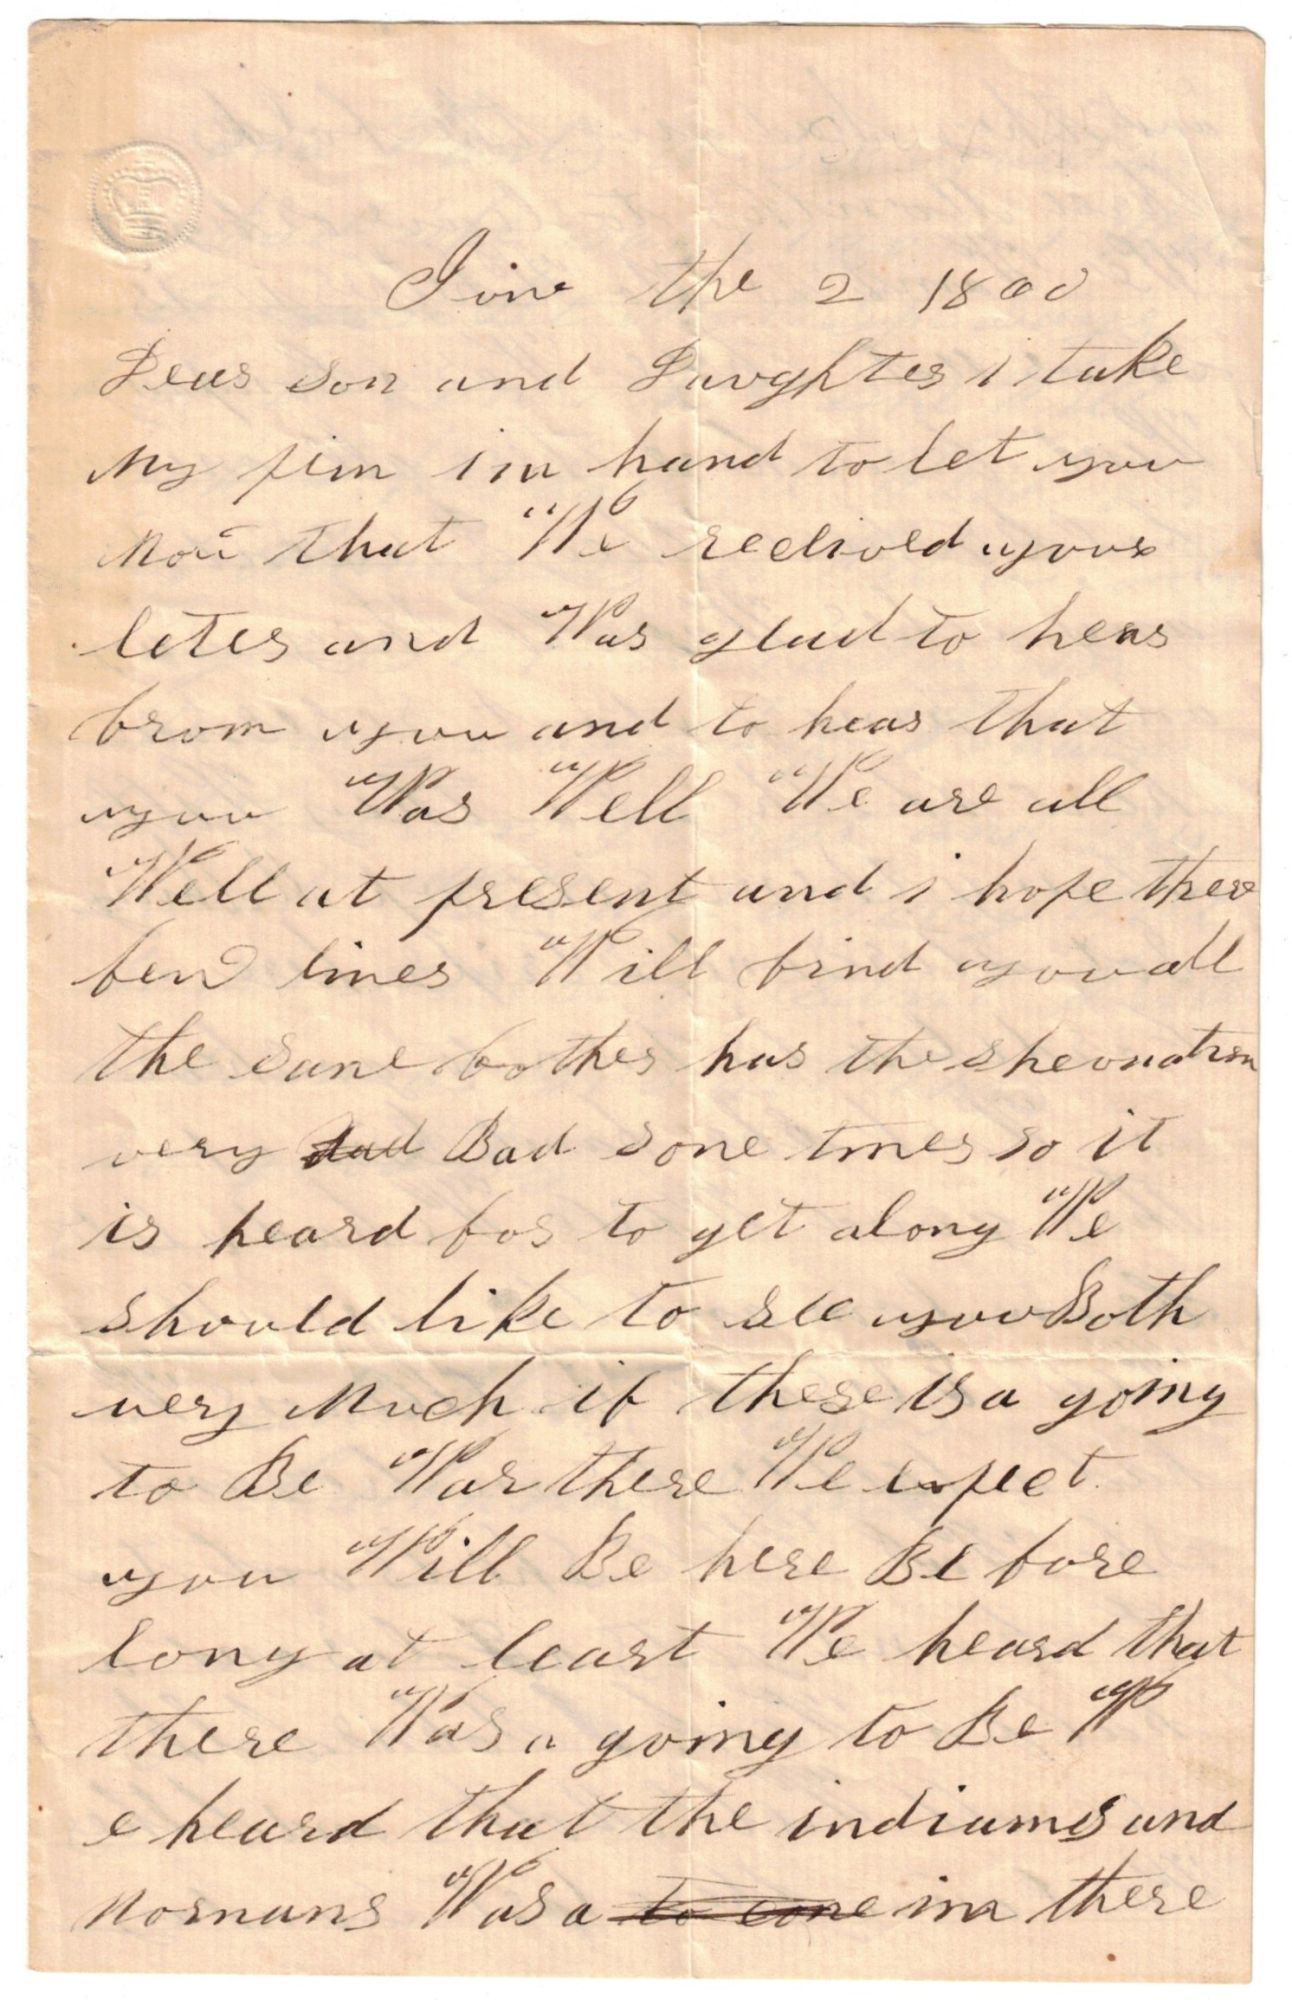 June the 2 1860
Dear son and Daughter i take
my pen in hand to let you
now that We recived your
leter and Was glad to hear
from you and to hear that
you Was Well We are all
Well at present and i hope these
few lines Will find you all
the same father has the
very dad Bad some times so it
is heard for to get along We
should like to see you Both
very much if there is a going
to Be War there We expect
you Will Be here Be fore
long at least We heard that
there Was a going to Be W
e heard that the indians and
mormans Was a to come in there